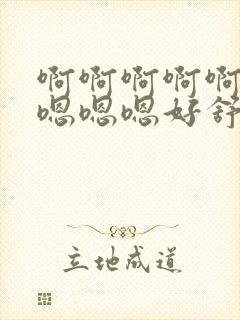 啊啊啊啊啊
嗯嗯嗯好舒
立地成道